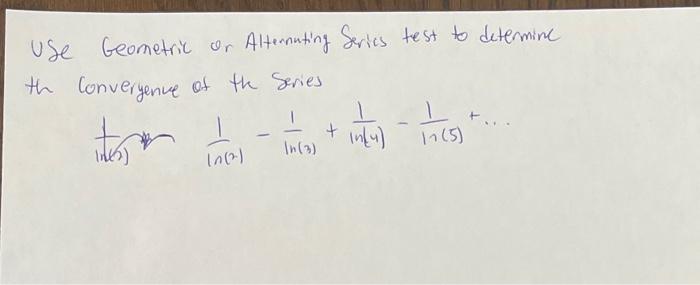 Use Geometric or Alternating Series test to determine
th Convergence of th Series
1/ln(2) - 1/ln(3) + 1/ln(4) - 1/ln(5) + ...